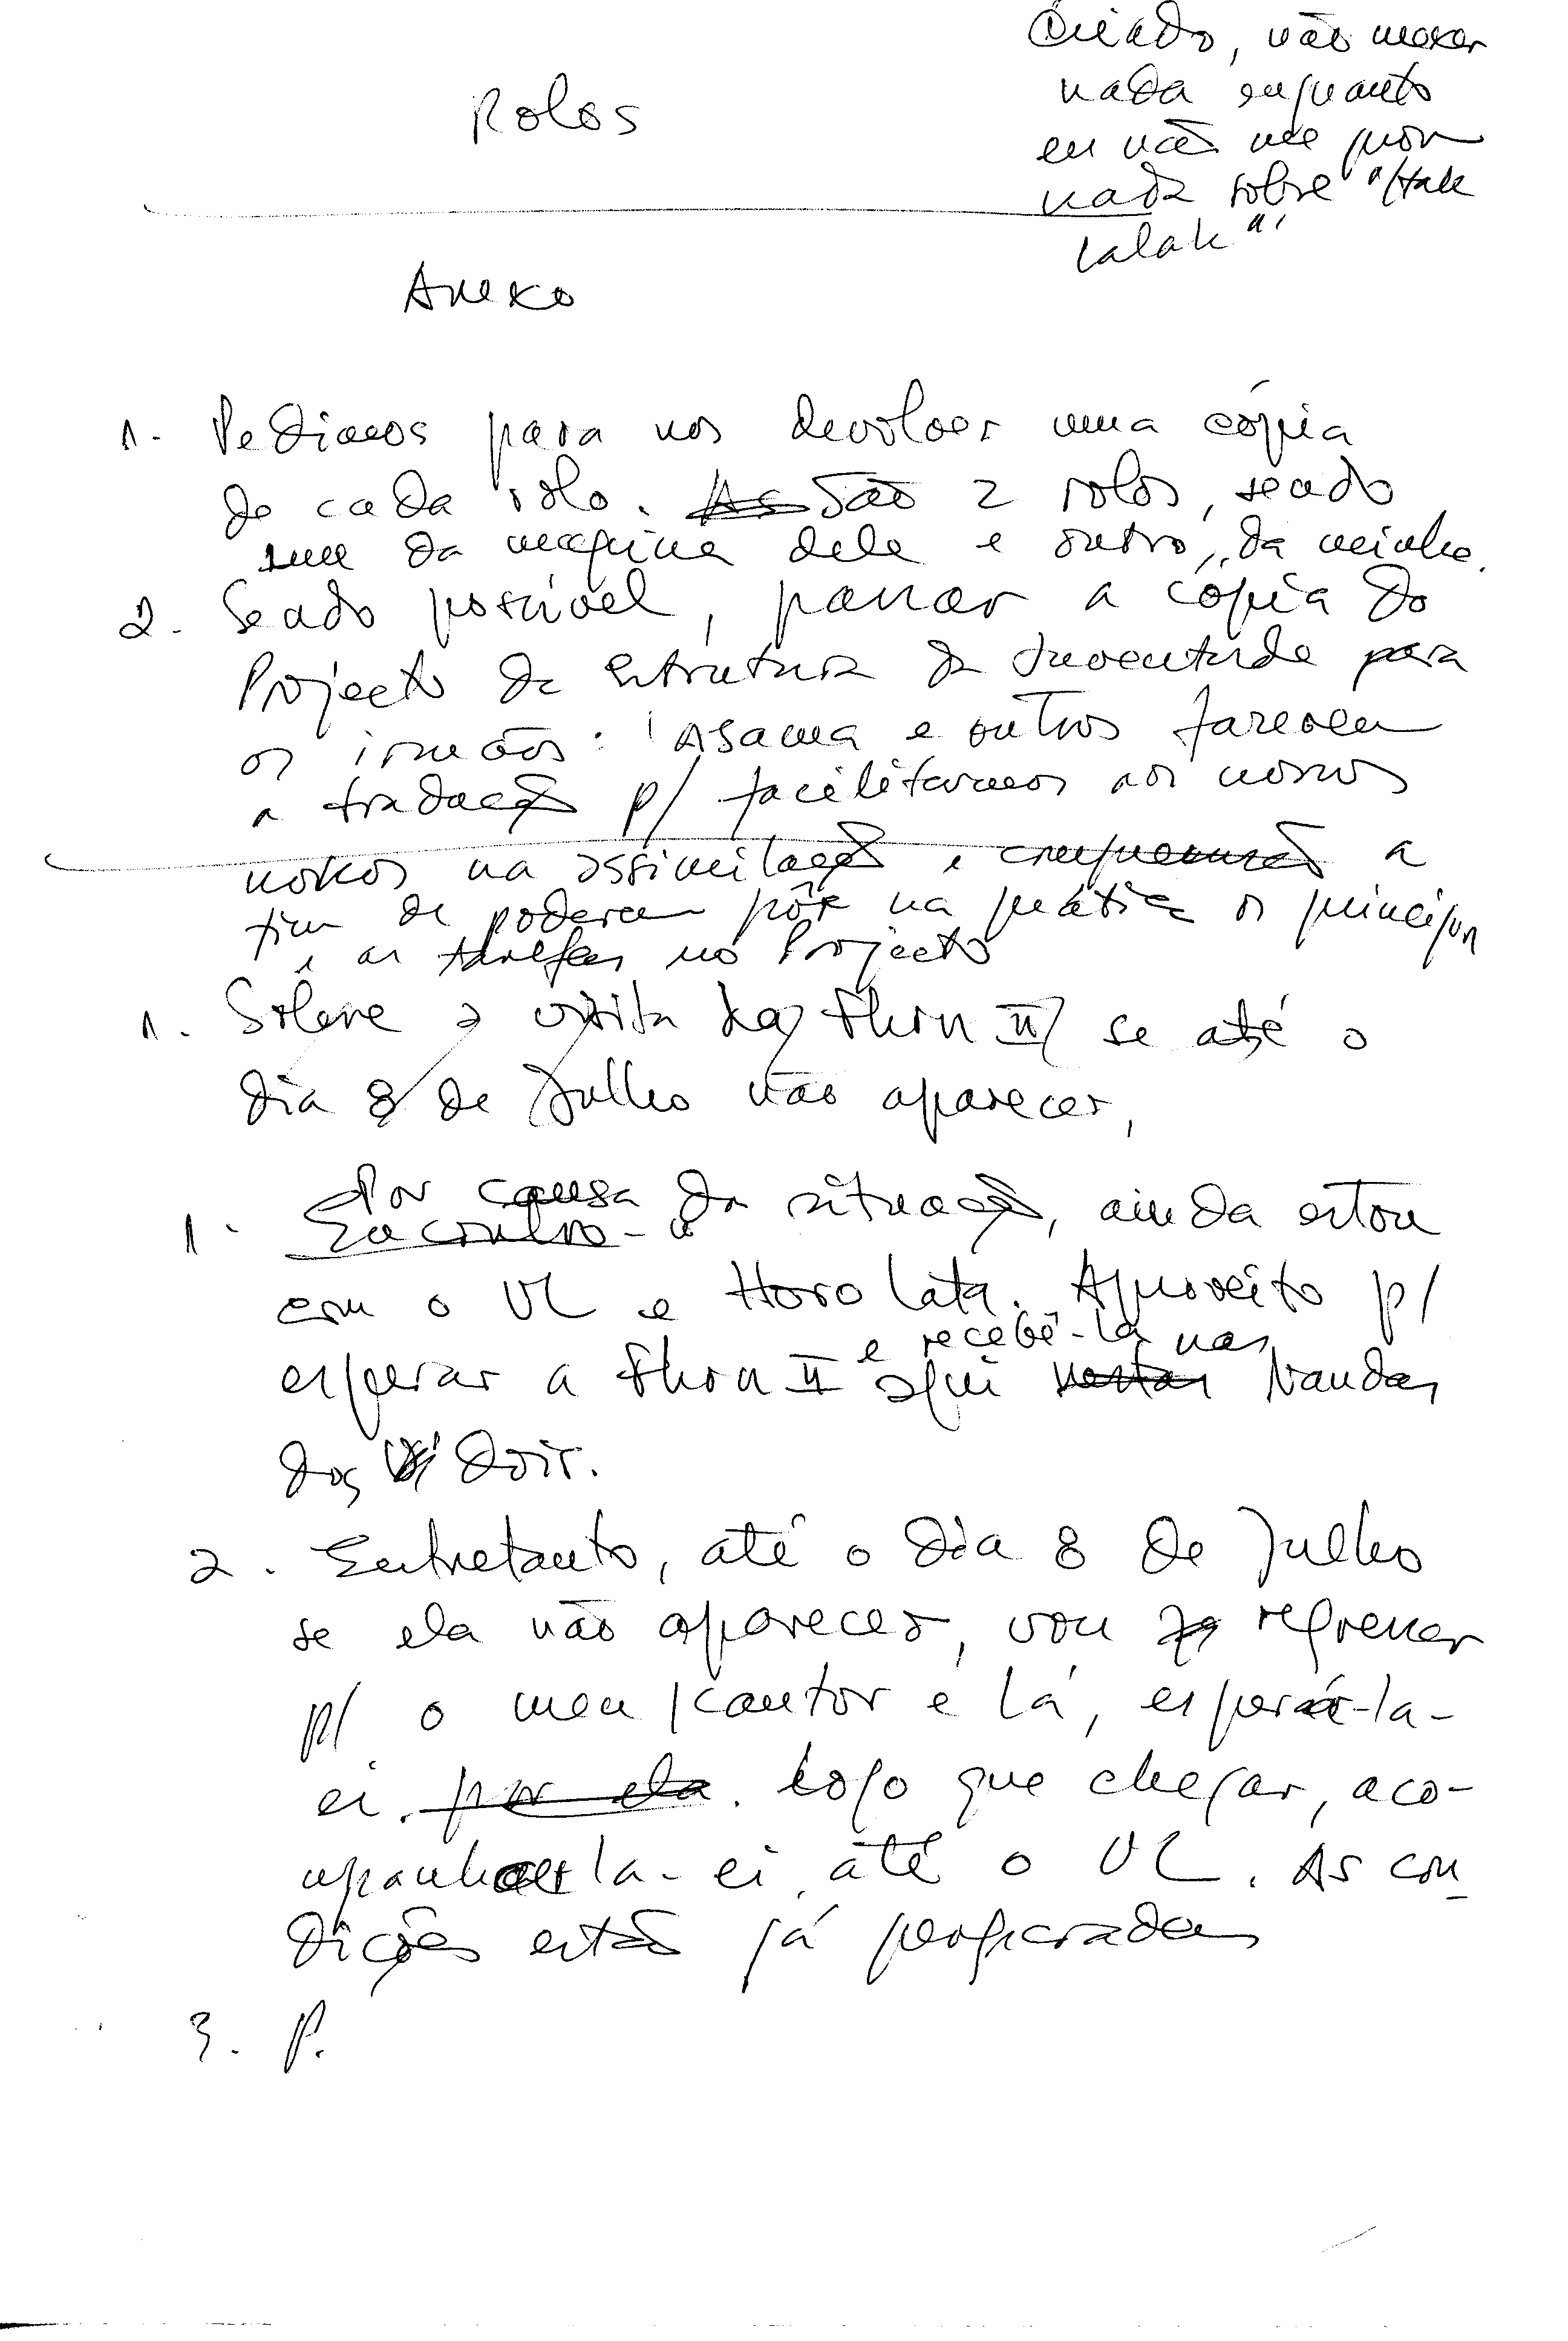 Rolos
Criado, não mexer
nada enquanto
eu não me pron
nada sobre "Hak
lalak"
Anexo
1. Pedimos para nos devolver uma cópia
de cada rolo. As São 2 rolos, sendo
um da máquina dele e outro, da minha.
2. Sendo possível, passar a cópia do
Projecto da Estrutura da Juventude para
os irmãos: Asama e outros fazerem
a tradução p/ facilitarmos aos nossos
na assimilação e a
fim de poderem pôr na prática os princípios
e as tarefas no Projecto
1. Sobre a visita da Thon II se até o
dia 8 de Julho não aparecer,
1. Por causa da situação, ainda estou
Encontro-
com o UL e Horo Lata. Aproveito p/
e recebê-la nas
esperar a Thon II aqui Bandas
dos dois.
2. Entretanto, até o dia 8 de Julho
se ela não aparecer, vou regressar
p/ o meu Kantor e lá, esperá-la-
ei. por ela. Logo que chegar, aco-
mpanha la-ei até o UL. As con
dições estão já preparadas
3. P.